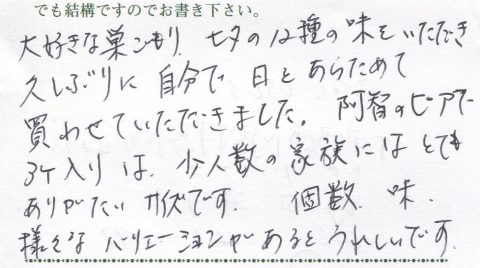 でも結構ですのでお書き下さい。
大好きな巣ごもり 七夕の12種の味をいただき
久しぶりに 自分で 日をあらためて
買わせていただきました。 阿智のピアで
3ケ入りは、少人数の家族にはとても
ありがたいサイズです。 個数、味、
様々なバリエーションがあるとうれしいです。